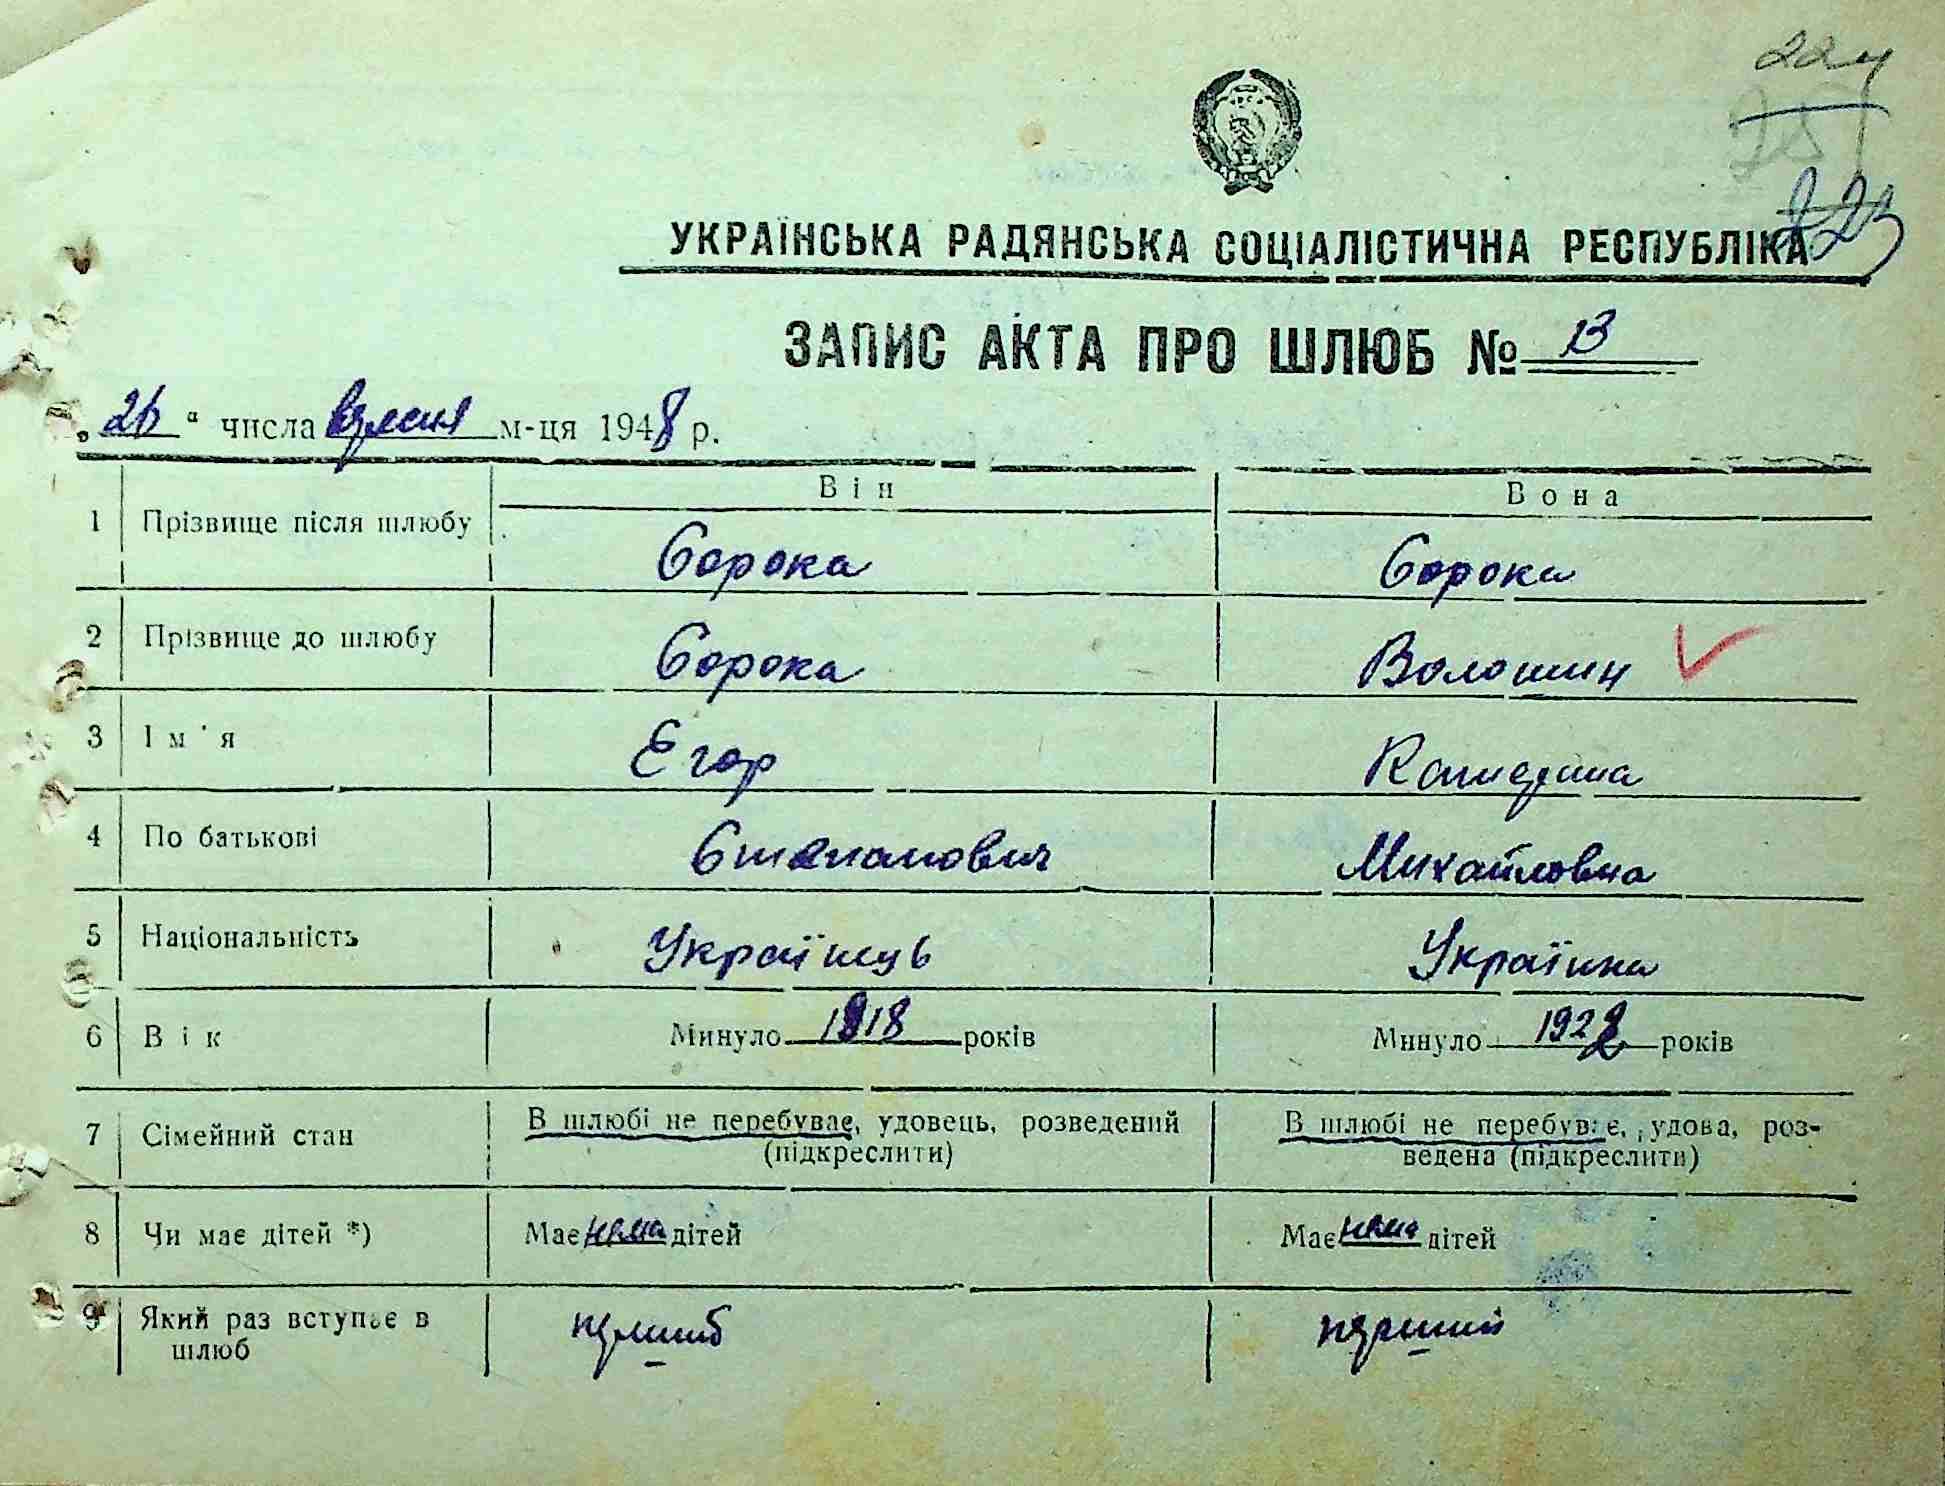 224
223
УКРАЇНСЬКА РАДЯНСЬКА СОЦІАЛІСТИЧНА РЕСПУБЛІКА
ЗАПИС АКТА ПРО ШЛЮБ № 13
„26“ числа вересня м-ця 1948 р.
Він Вона
1 Прізвище після шлюбу Сорока Сорока
2 Прізвище до шлюбу Сорока Волошин
3 Ім'я Егор Катерина
4 По батькові Степанович Михайловна
5 Національність Українець Українка
6 Вік Минуло 1918 років Минуло 1922 років
7 Сімейний стан В шлюбі не перебуває, удовець, розведений В шлюбі не перебуває, удова, роз-
(підкреслити) ведена (підкреслити)
8 Чи має дітей *) Має нема дітей Має нема дітей
9 Який раз вступає в перший перший
шлюб